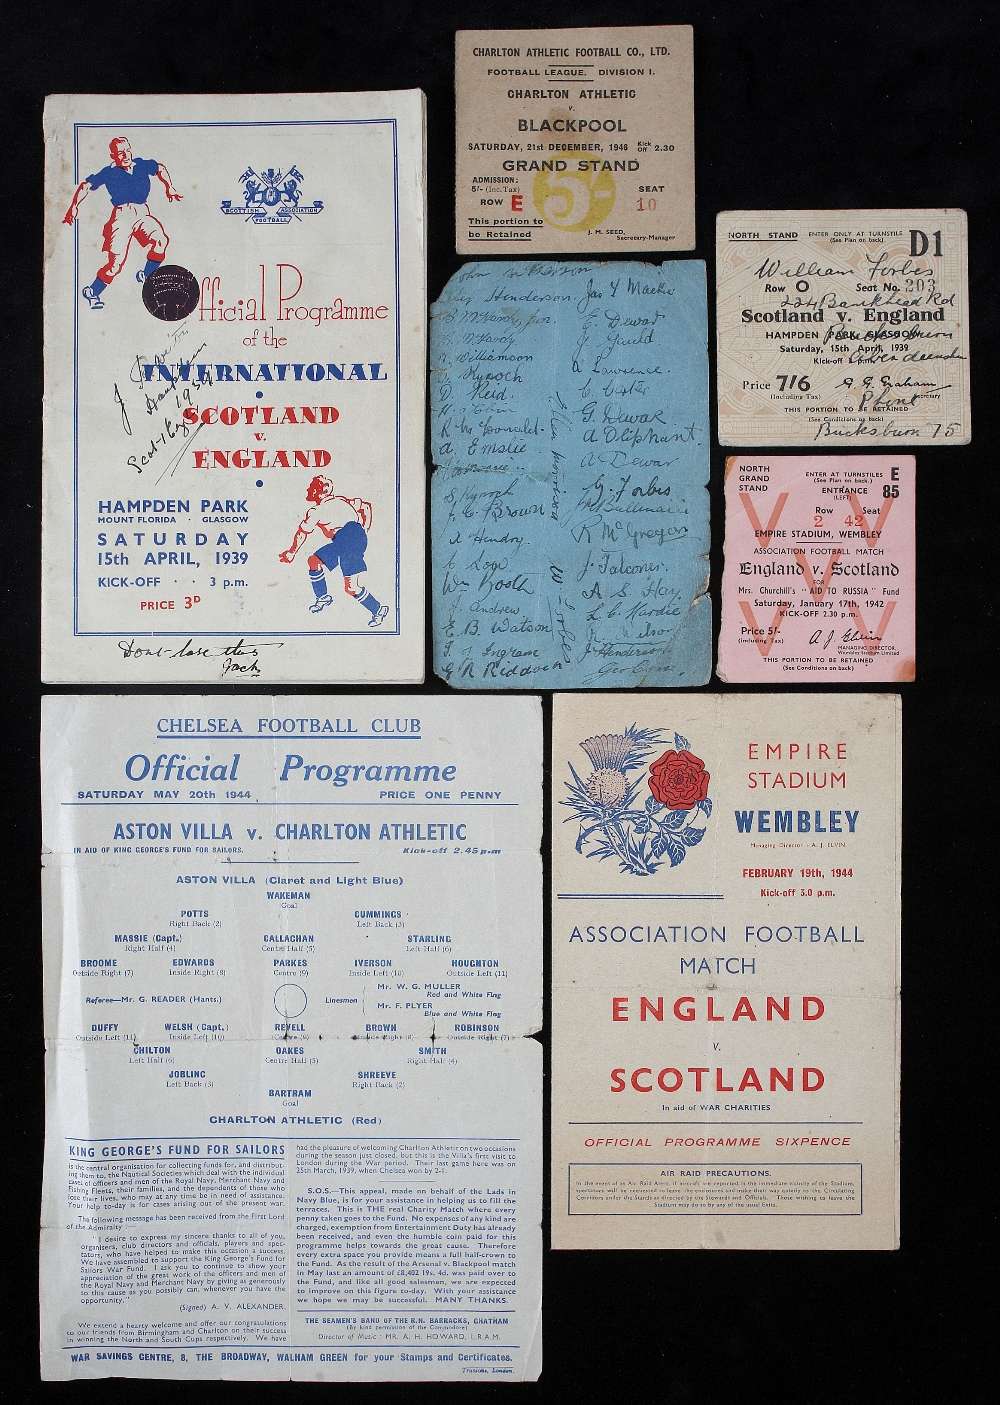 Official Programme
of the
INTERNATIONAL
SCOTLAND
v.
ENGLAND
HAMPDEN PARK
MOUNT FLORIDA · GLASGOW
SATURDAY
15th APRIL, 1939
KICK-OFF · · 3 p.m.
PRICE 3D
SCOTTISH FOOTBALL ASSOCIATION
Dont lose this
Jack
CHARLTON ATHLETIC FOOTBALL CO., LTD.
FOOTBALL LEAGUE. DIVISION I.
CHARLTON ATHLETIC
v.
BLACKPOOL
SATURDAY, 21st DECEMBER, 1946 Kick Off 2.30
GRAND STAND
ADMISSION:
5/- (Inc. Tax)
5/-
ROW E
SEAT 10
This portion to
be Retained
J. M. SEED,
Secretary-Manager
Henderson Jas Y Mackie
G. Dewar
Williamson
A Lawrence
Rynoch
Reid
G. Dewar
A Oliphant
A. Emslie
A Dewar
G. Forbes
Brown
R McGregor
Hendry
J. Falconer
Wm Booth
A S Hay
Andrew
E. B. Watson
Wilson
Ingram
J Henderson
G R Riddoch
W. Forbes
NORTH STAND
ENTER ONLY AT TURNSTILE
(See Plan on back)
D1
William Forbes
Row O Seat No. 203
224 Bankhead Rd
Scotland v. England
HAMPDEN PARK, GLASGOW
Saturday, 15th April, 1939
Kick-off 3 p.m.
Price 7/6
(Including Tax)
G. G. Graham
Secretary
Phone
THIS PORTION TO BE RETAINED
(See Conditions on back)
Bucksburn 75
NORTH
GRAND
STAND
ENTER AT TURNSTILES
(See Plan on back.)
E
85
ENTRANCE
(LEFT)
Row Seat
2 42
EMPIRE STADIUM, WEMBLEY
ASSOCIATION FOOTBALL MATCH
England v. Scotland
FOR
Mrs. Churchill's "AID TO RUSSIA" Fund
Saturday, January 17th, 1942
KICK-OFF 2.30 p.m.
Price 5/-
(Including Tax)
A J Elvin
MANAGING DIRECTOR
Wembley Stadium Limited
THIS PORTION TO BE RETAINED
(See Conditions on back)
CHELSEA FOOTBALL CLUB
Official Programme
SATURDAY MAY 20th 1944
PRICE ONE PENNY
ASTON VILLA v. CHARLTON ATHLETIC
IN AID OF KING GEORGE'S FUND FOR SAILORS.
Kick-off 2.45 p.m
ASTON VILLA (Claret and Light Blue)
WAKEMAN
Goal
POTTS CUMMINGS
Right Back (2) Left Back (3)
MASSIE (Capt.) CALLACHAN STARLING
Right Half (4) Centre Half (5) Left Half (6)
BROOME EDWARDS PARKES IVERSON HOUGHTON
Outside Right (7) Inside Right (8) Centre (9) Inside Left (10) Outside Left (11)
Referee—Mr. G. READER (Hants.)
Linesmen
Mr. W. G. MULLER
Red and White Flag
Mr. F. PLYER
Blue and White Flag
DUFFY WELSH (Capt.) REVELL BROWN ROBINSON
Outside Left (11) Inside Left (10) Centre (9) Inside Right (8) Outside Right (7)
CHILTON OAKES SMITH
Left Half (6) Centre Half (5) Right Half (4)
JOBLING SHREEVE
Left Back (3) Right Back (2)
BARTRAM
Goal
CHARLTON ATHLETIC (Red)
KING GEORGE'S FUND FOR SAILORS
is the central organisation for collecting funds for, and distribut-
ing them to, the Nautical Societies which deal with the individual
cases of officers and men of the Royal Navy, Merchant Navy and
Fishing Fleets, their families, and the dependents of those who
lose their lives, who may at any time be in need of assistance.
Your help to-day is for cases arising out of the present war.
The following message has been received from the First Lord
of the Admiralty :—
"I desire to express my sincere thanks to all of you,
organisers, club directors and officials, players and spec-
tators, who have helped to make this occasion a success.
We have assembled to support the King George's Fund for
Sailors War Fund. I ask you to continue to show your
appreciation of the great work of the officers and men of
the Royal Navy and Merchant Navy by giving as generously
to this cause as you possibly can, whenever you have the
opportunity."
(Signed) A. V. ALEXANDER.
We extend a hearty welcome and offer our congratulations
to our friends from Birmingham and Charlton on their success
in winning the North and South Cups respectively. We have
had the pleasure of welcoming Charlton Athletic on two occasions
during the season just closed, but this is the Villa's first visit to
London during the War period. Their last game here was on
25th March, 1939, when Chelsea won by 2-1.
S.O.S.—This appeal, made on behalf of the Lads in
Navy Blue, is for your assistance in helping us to fill the
terraces. This is THE real Charity Match where every
penny taken goes to the Fund. No expenses of any kind are
charged, exemption from Entertainment Duty has already
been received, and even the humble coin paid for this
programme helps towards the great cause. Therefore
every extra space you provide means a full half-crown to
the Fund. As the result of the Arsenal v. Blackpool match
in May last an amount of £8,402 19s. 4d. was paid over to
the Fund, and like all good salesmen, we are expected
to improve on this figure to-day. With your assistance
we hope we may be successful. MANY THANKS.
THE SEAMEN'S BAND OF THE R.N. BARRACKS, CHATHAM
(By kind permission of the Commodore)
Director of Music : MR. A. H. HOWARD, L.R.A.M.
WAR SAVINGS CENTRE, 8, THE BROADWAY, WALHAM GREEN for your Stamps and Certificates.
EMPIRE
STADIUM
WEMBLEY
Managing Director - A. J. ELVIN
FEBRUARY 19th, 1944
Kick-off 3.0 p.m.
ASSOCIATION FOOTBALL
MATCH
ENGLAND
v.
SCOTLAND
In aid of WAR CHARITIES
OFFICIAL PROGRAMME SIXPENCE
AIR RAID PRECAUTIONS.
In the event of an Air Raid Alert, if aircraft are reported in the immediate vicinity of the Stadium,
spectators will be requested to leave the enclosures and make their way quietly to the Circulating
Corridors under the Stands as directed by the Stewards and Officials. Those wishing to leave the
Stadium may do so by any of the usual Exits.